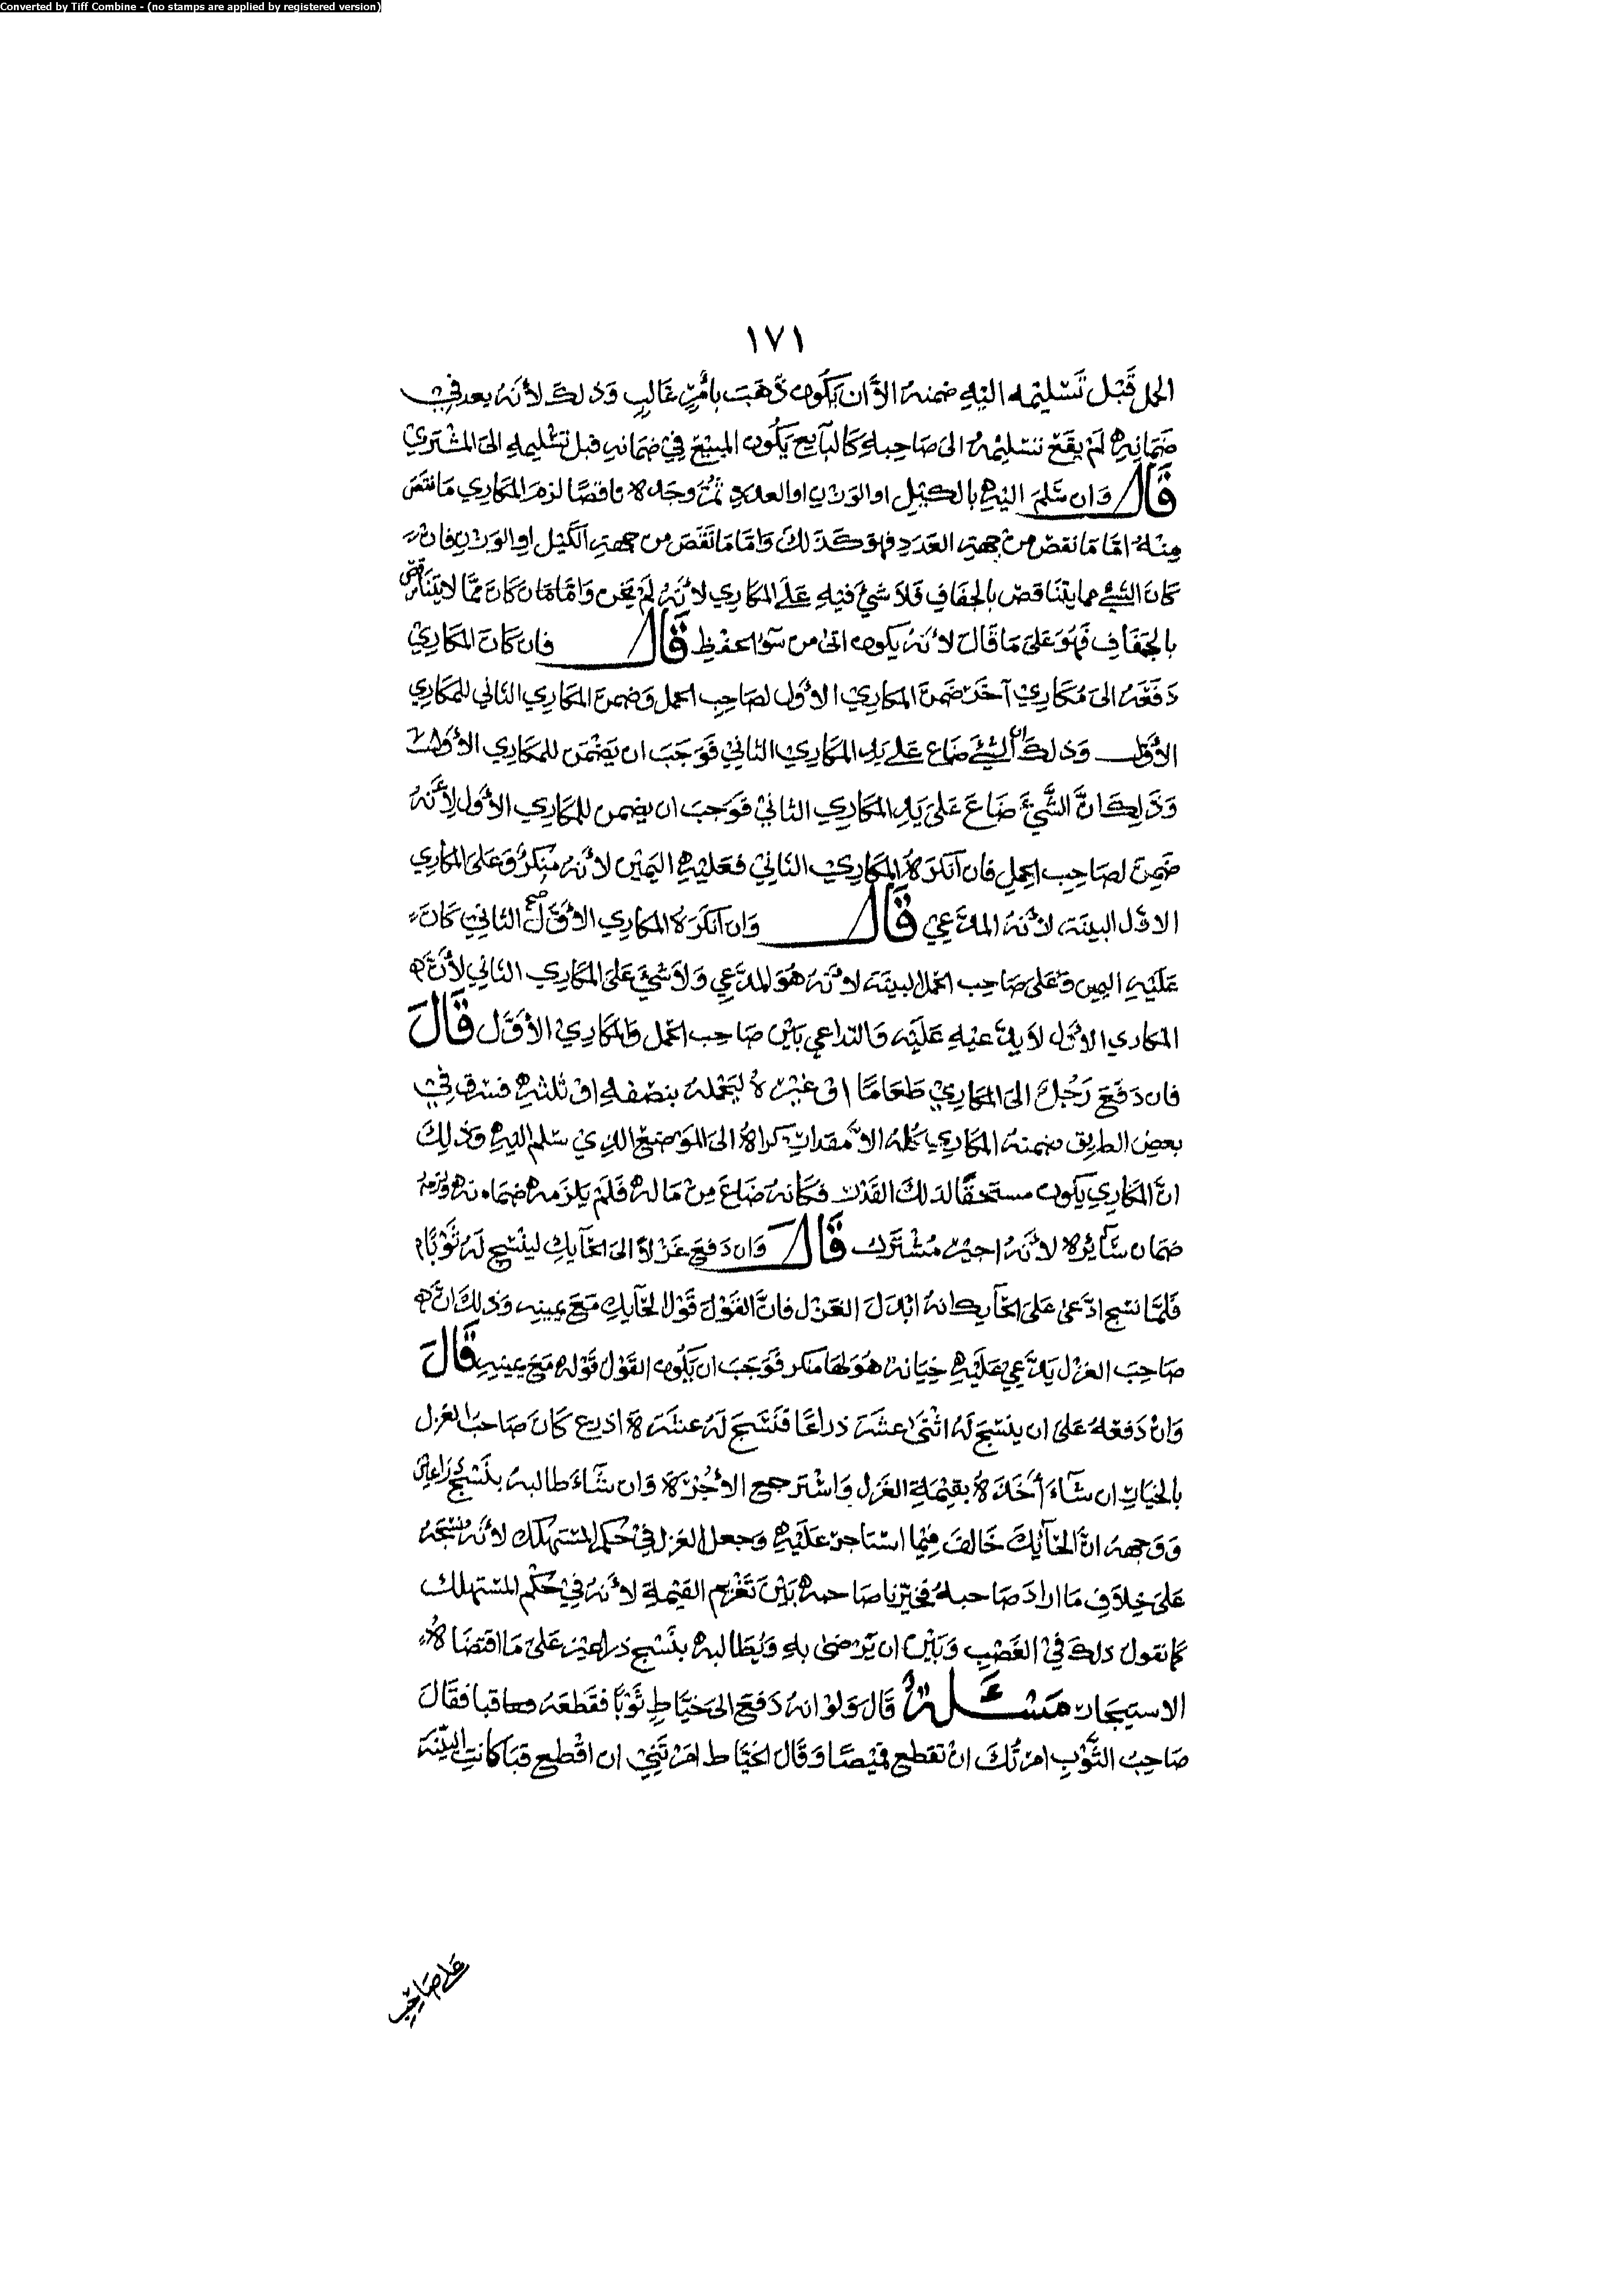 Converted by Tiff Combine - (no stamps are applied by registered version)
١٧١
الحمل قَبْل تَسْليمه اليْهِ ضمنهُ الاَّ ان يَكُون ذَهَبَ بأمْرٍ غَالبٍ وَذلكَ لأنهُ بعد في
ضَمَانِهِ لَمْ يقَعْ تسْليمُهُ الى صَاحِبهِ كَالبَايع يَكُون المبيْعَ فِيْ ضمَانهِ قبل تسْليمهِ الىَ المشْتَرِيْ
قَال وَان سَّلمَ اليْهِ بالكيْلِ او الوَزْنِ او العددِ ثُمَّ وَجَده ناقصًا لزمَ المكَارِي مَا نقَصَ
مِنْهُ امَّا مَا نقصَ مِنْ جهةِ العَدَدِ فهوَ كَذلكَ وَامَّا مَا نَقَصَ من جهةِ الكَيْل او الوَزْنِ فان
كَانَ الشيْء مما يتنَاقصُ بالجفَافِ فَلاَ شيْء فيْهِ عَلَى المكَارِي لأنَهُ لمْ يَخُن وَامَّا ان كَانَ مَّا لا يتَنَاقص
بالجَفَافِ فَهُوَ عَلىَ مَا قَالَ لأنَهُ يكون اتىٰ من سَوْء حفْظِ قَال فان كَانَ المكَارِيْ
دَفَعَهُ الىَ مُكَارِيْ آخَرَ ضَمنَ المكَارِيْ الاوَّل لصَاحِبِ الحمل وَضمنَ المكَارِي الثاني للمكَارِي
الأوَّل وَذلكَ انَّ الشيْءَ ضَاعَ عَلى يَدِ المكَارِي الثانيْ فَوَجَبَ ان يَضْمَن للمكَارِي الأوَّل
وَذَلِكَ انَّ الشَّيْءَ ضَاعَ عَلىَ يَدِ المكَارِي الثانيْ فوَجَبَ ان يضمن للمكَارِي الأوَّل لأنَّهُ
ضَمِنَ لصَاحِب الحِملِ فان انكَرَهُ المكَارِيْ الثانِيْ فعَليْهِ اليَمِيْن لأنَهُ منكِرٌ وَعَلىَ المكَارِي
الاوَّل البينَة لأنَهُ المدَّعِيْ قَال وَان انكَرَهُ المكارِي الأوَّل صح الثانِيْ كَانَ
عَلَيْهِ اليمِيْن وَعَلى صَاحِب الحمْل البينَة لأنَهُ هُوَ المدَّعِي وَلاَ شيْءَ عَلىَ المكَارِي الثاني لأنَّ
المكاري الأوَّل لاَ يدَّعيْهِ عَلَيْه وَالتداعِي بَايْن صَاحِب الحْمل وَالمكَارِيْ الأوَّل قَالَ
فان دَفَعَ رَجُلٌ الىَ المكَارِيْ طَعَامًا اوْ غيْرَهُ ليَحْملهُ بنصْفهِ اوْ ثلثهِ فسُرِقَ فِي
بعض الطريق ضمنهُ المكَارِي كُلهُ الاَّ مقدَار كرَاهُ الىَ الموَضِعْ الذي سُلم اليْهِ وَذلِكَ
انَّ المكَارِي يَكُون مستحقًا لذلكَ القَدْر فكَانهُ ضَاعَ مِنْ مَالهِ فَلَمْ يلزَمه ضمَانهُ وَلزمهُ
ضمَان سَّائِرِهِ لأنَهُ اجيْر مُشْتَرَك قَال وَان دَفعَ غَزْلاً الىَ الحَآيكِ لينْسِجَ لَهُ ثَوْبًا
فَلمَّا نسَج ادَّعىٰ عَلىَ الحَآيك انهُ ابْدَلَ الغَزْل فانَّ القَوْلَ قَوْل الحَآيكِ مَعَ يمينه وَذلكَ انَّ
صَاحِبَ الغزْل يَدَّعِي عَليْهِ خِيَانةً هُوَ لهَا منكر فَوَجَبَ ان يَكُون القَوْل قَوْلهُ مَعَ يمينهِ قَالَ
وَانْ دَفعَهُ عَلىٰ ان ينْسِجَ لَهُ اثْنىَ عشَرَ ذراعًا فَنَسَجَ لَهُ عشَرَةَ اذرع كَانَ صَاحِبُ الغَزل
بالخيَارِ ان شَآءَ أَخَذَهُ بقيْمَةِ الغَزْل وَاسْترجع الأجْرَةَ وَان شَآءَ طالبهُ بنَسْج ذرَاعين
وَوَجههُ انَّ الحَآيكَ خَالفَ فِيْمَا اسْتَاجرَ عَلَيْهِ وَجعل الغزل فيْ حُكم المسْتهلك لأنَهُ نسَجَهُ
عَلىَ خِلاَفِ مَا ارادَ صَاحبهُ فخيّرْنا صَاحبهُ بَيْنَ تَغْرِيم القيْمةِ لأنَهُ فِيْ حُكْم المسْتهلك
كَمَا نقول ذلكَ فيْ الغَصْبِ وَبَيْن ان يَرْضىٰ بهِ وَيُطَالبهُ بنَسْج ذراعَيْن عَلىَ مَا اقتَضَاهُ
الاستيجَار مَسْئَلَةٌ قَال وَلوْ انهُ دَفعَ الى خَيَّاطٍ ثَوْبًا فقَطعَهُ قبا فقَالَ
صَاحِبُ الثَّوْبِ امرْتُكَ انْ تقطع قميْصًا وَقَال الخَيَّاط امَرْتَنِيْ ان اقْطع قبَا كَانتِ البيِّنَة
عَلى صَاحِبِ